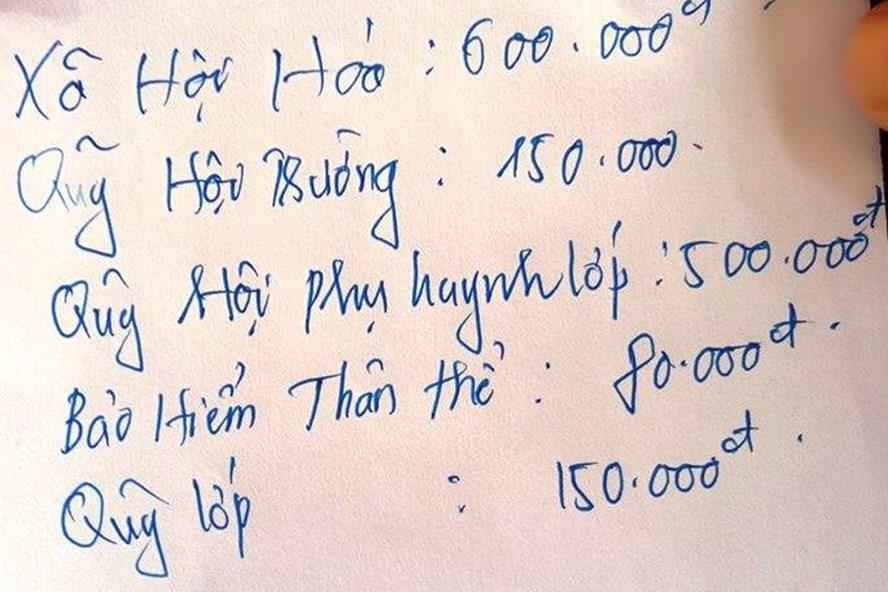 Xã Hội Hóa : 600.000đ
Quỹ Hội Trường : 150.000.
Quỹ Hội phụ huynh lớp : 500.000đ
Bảo Hiểm Thân thể : 80.000đ.
Quỹ lớp : 150.000đ.